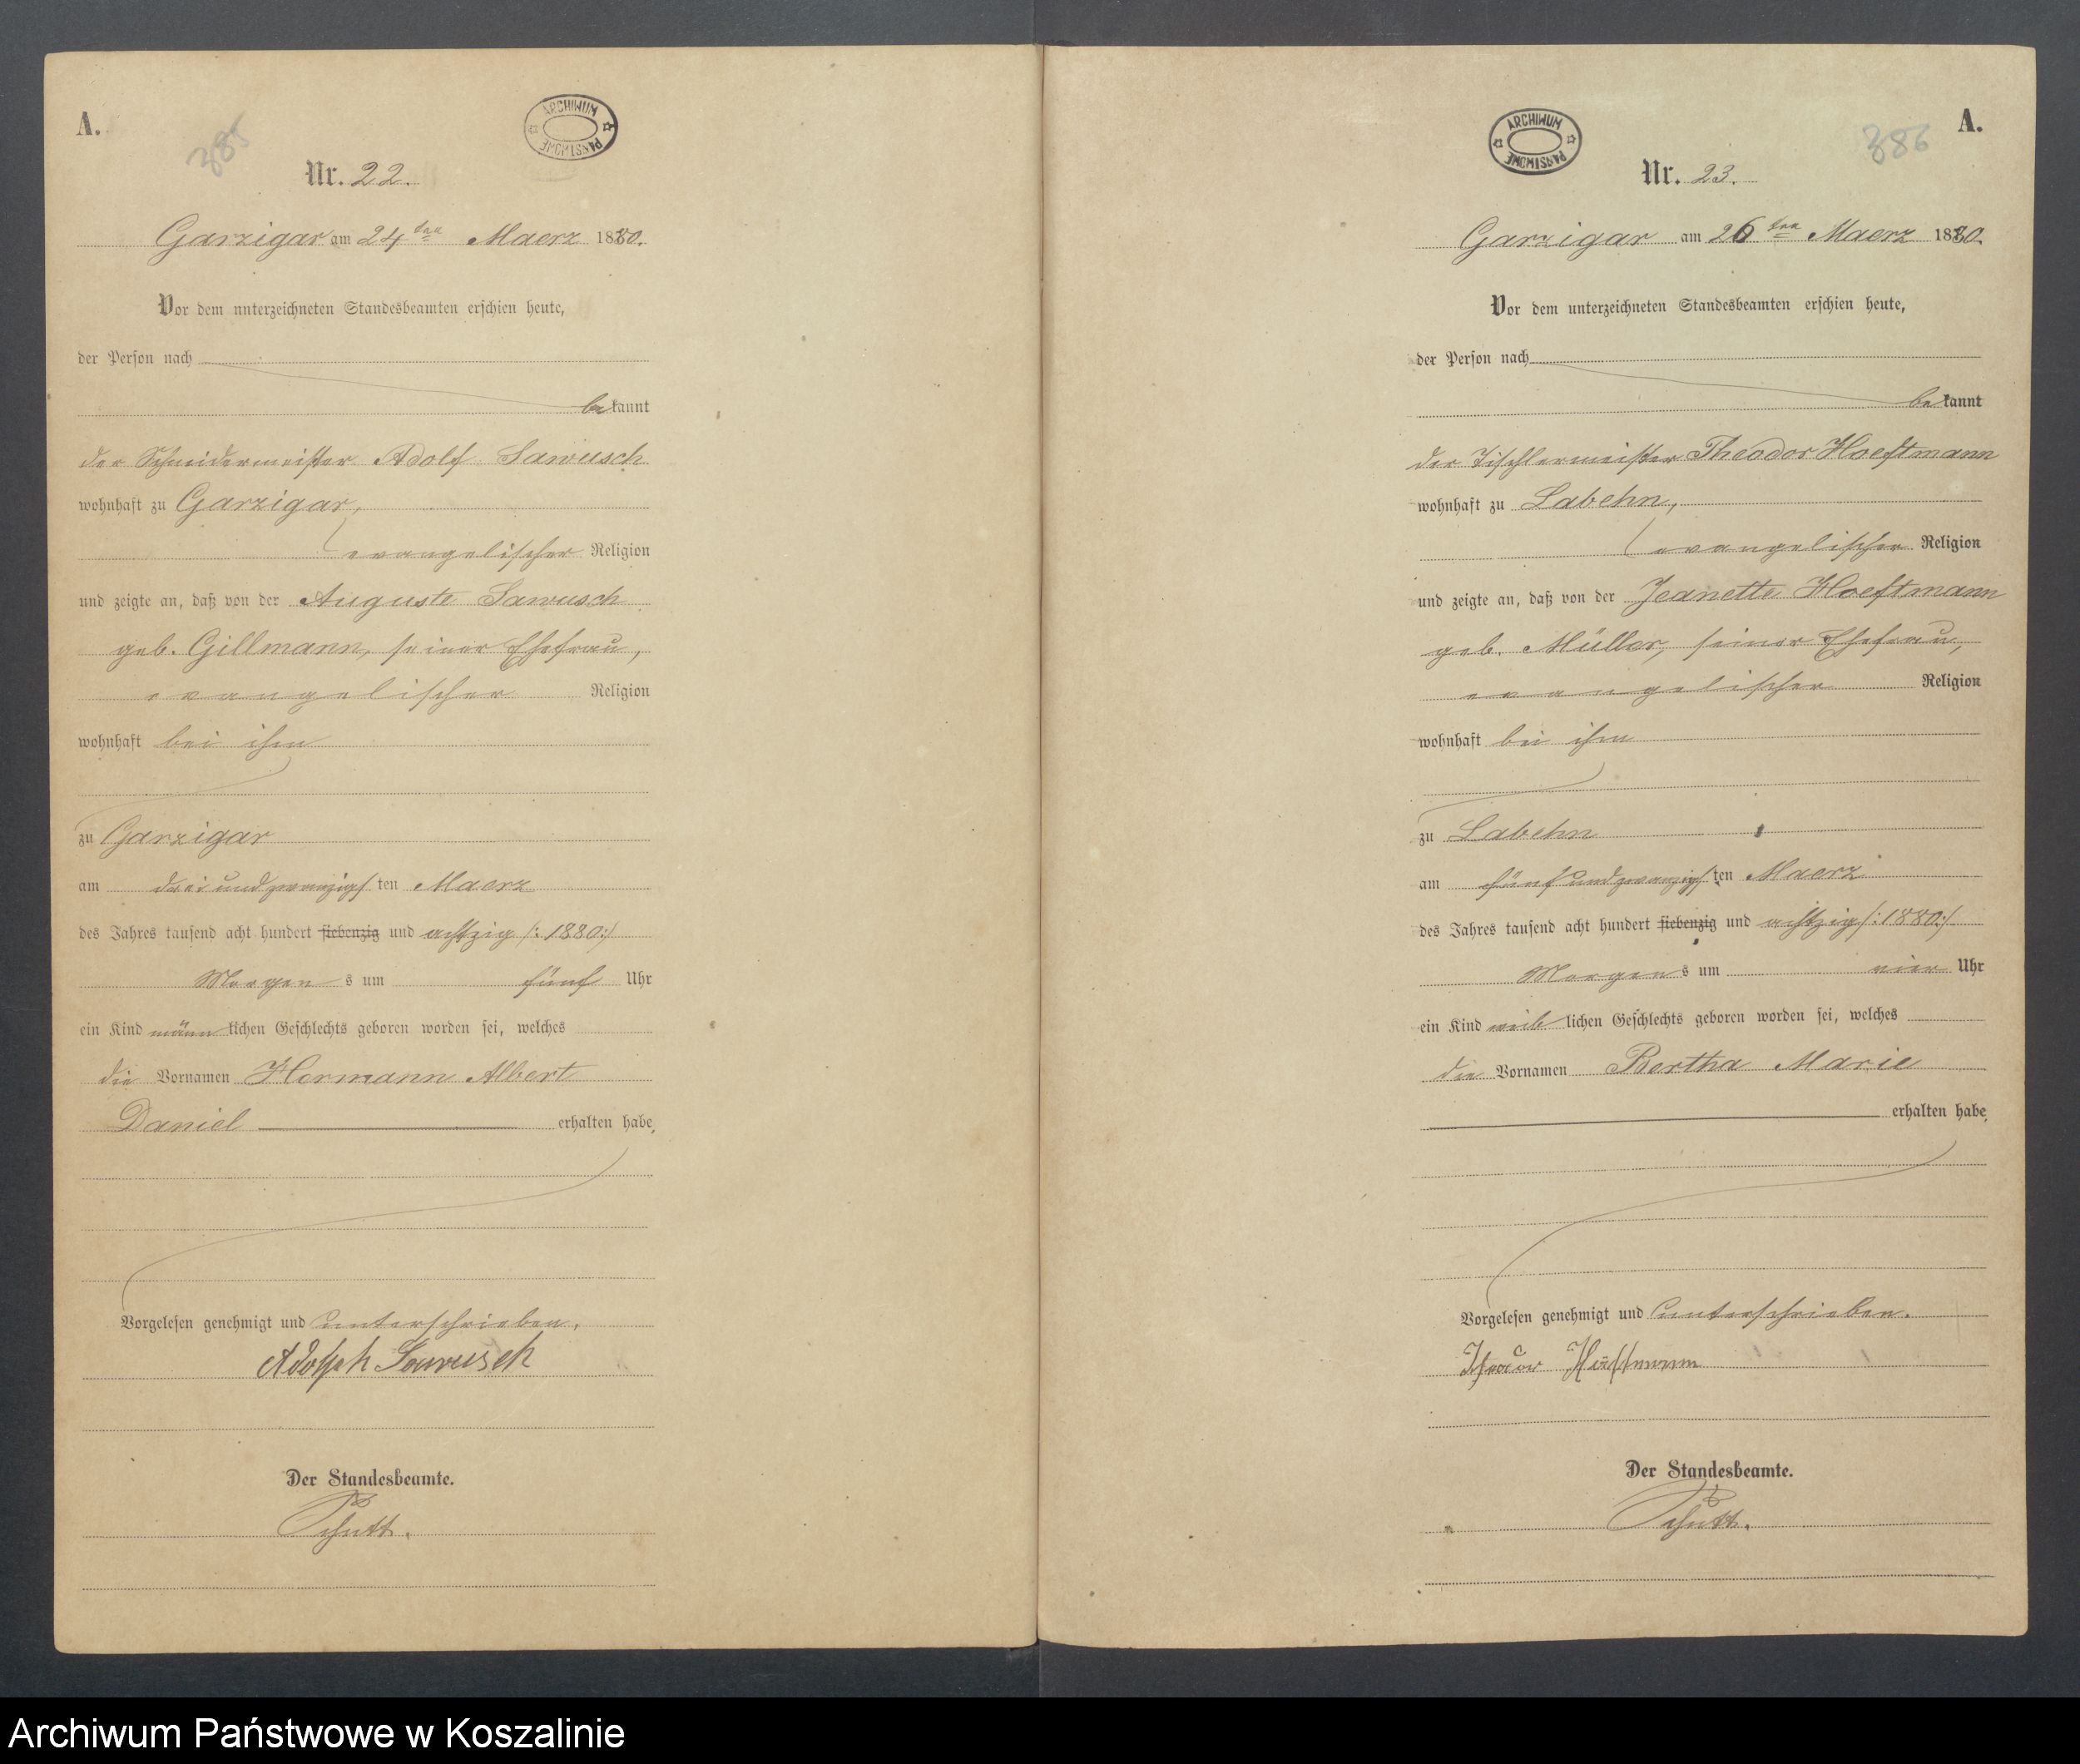 A.
385
ARCHIWUM PAŃSTWOWE
Nr. 22.
Garzigar am 24ten Maerz 1880.
Vor dem unterzeichneten Standesbeamten erschien heute,
der Person nach
bekannt
der Schneidermeister Adolf Sawusch
wohnhaft zu Garzigar,
evangelischer Religion
und zeigte an, daß von der Auguste Sawusch
geb. Gillmann, seiner Ehefrau,
evangelischer Religion
wohnhaft bei ihm
zu Garzigar
am dreiundzwanzigsten Maerz
des Jahres tausend acht hundert siebenzig und achtzig /:1880:/
Morgens um fünf Uhr
ein Kind männlichen Geschlechts geboren worden sei, welches
die Vornamen Hermann Albert
Daniel erhalten habe.
Vorgelesen genehmigt und unterschrieben.
Adolph Sawusch
Der Standesbeamte.
Schutt.
A.
386
ARCHIWUM PAŃSTWOWE
Nr. 23.
Garzigar am 26ten Maerz 1880.
Vor dem unterzeichneten Standesbeamten erschien heute,
der Person nach
bekannt
der Tischlermeister Theodor Hoeftmann
wohnhaft zu Labehn,
evangelischer Religion
und zeigte an, daß von der Jeanette Hoeftmann
geb. Müller, seiner Ehefrau,
evangelischer Religion
wohnhaft bei ihm
zu Labehn
am fünfundzwanzigsten Maerz
des Jahres tausend acht hundert siebenzig und achtzig /:1880:/
Morgens um vier Uhr
ein Kind weiblichen Geschlechts geboren worden sei, welches
die Vornamen Bertha Marie
erhalten habe.
Vorgelesen genehmigt und unterschrieben.
Theodor Höftmann
Der Standesbeamte.
Schutt.
Archiwum Państwowe w Koszalinie